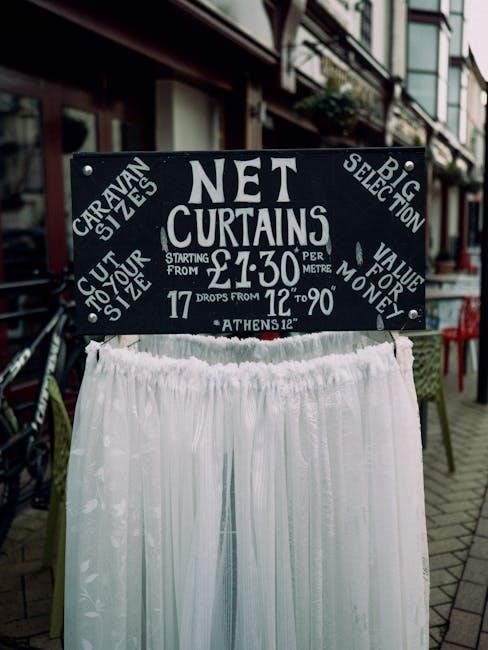 NET
CURTAINS
STARTING FROM £1·30* PER METRE
17 DROPS FROM 12" TO 90"
*ATHENS 12"
CARAVAN
SIZES
BIG
SELECTION
CUT
TO YOUR
SIZE
VALUE
FOR
MONEY